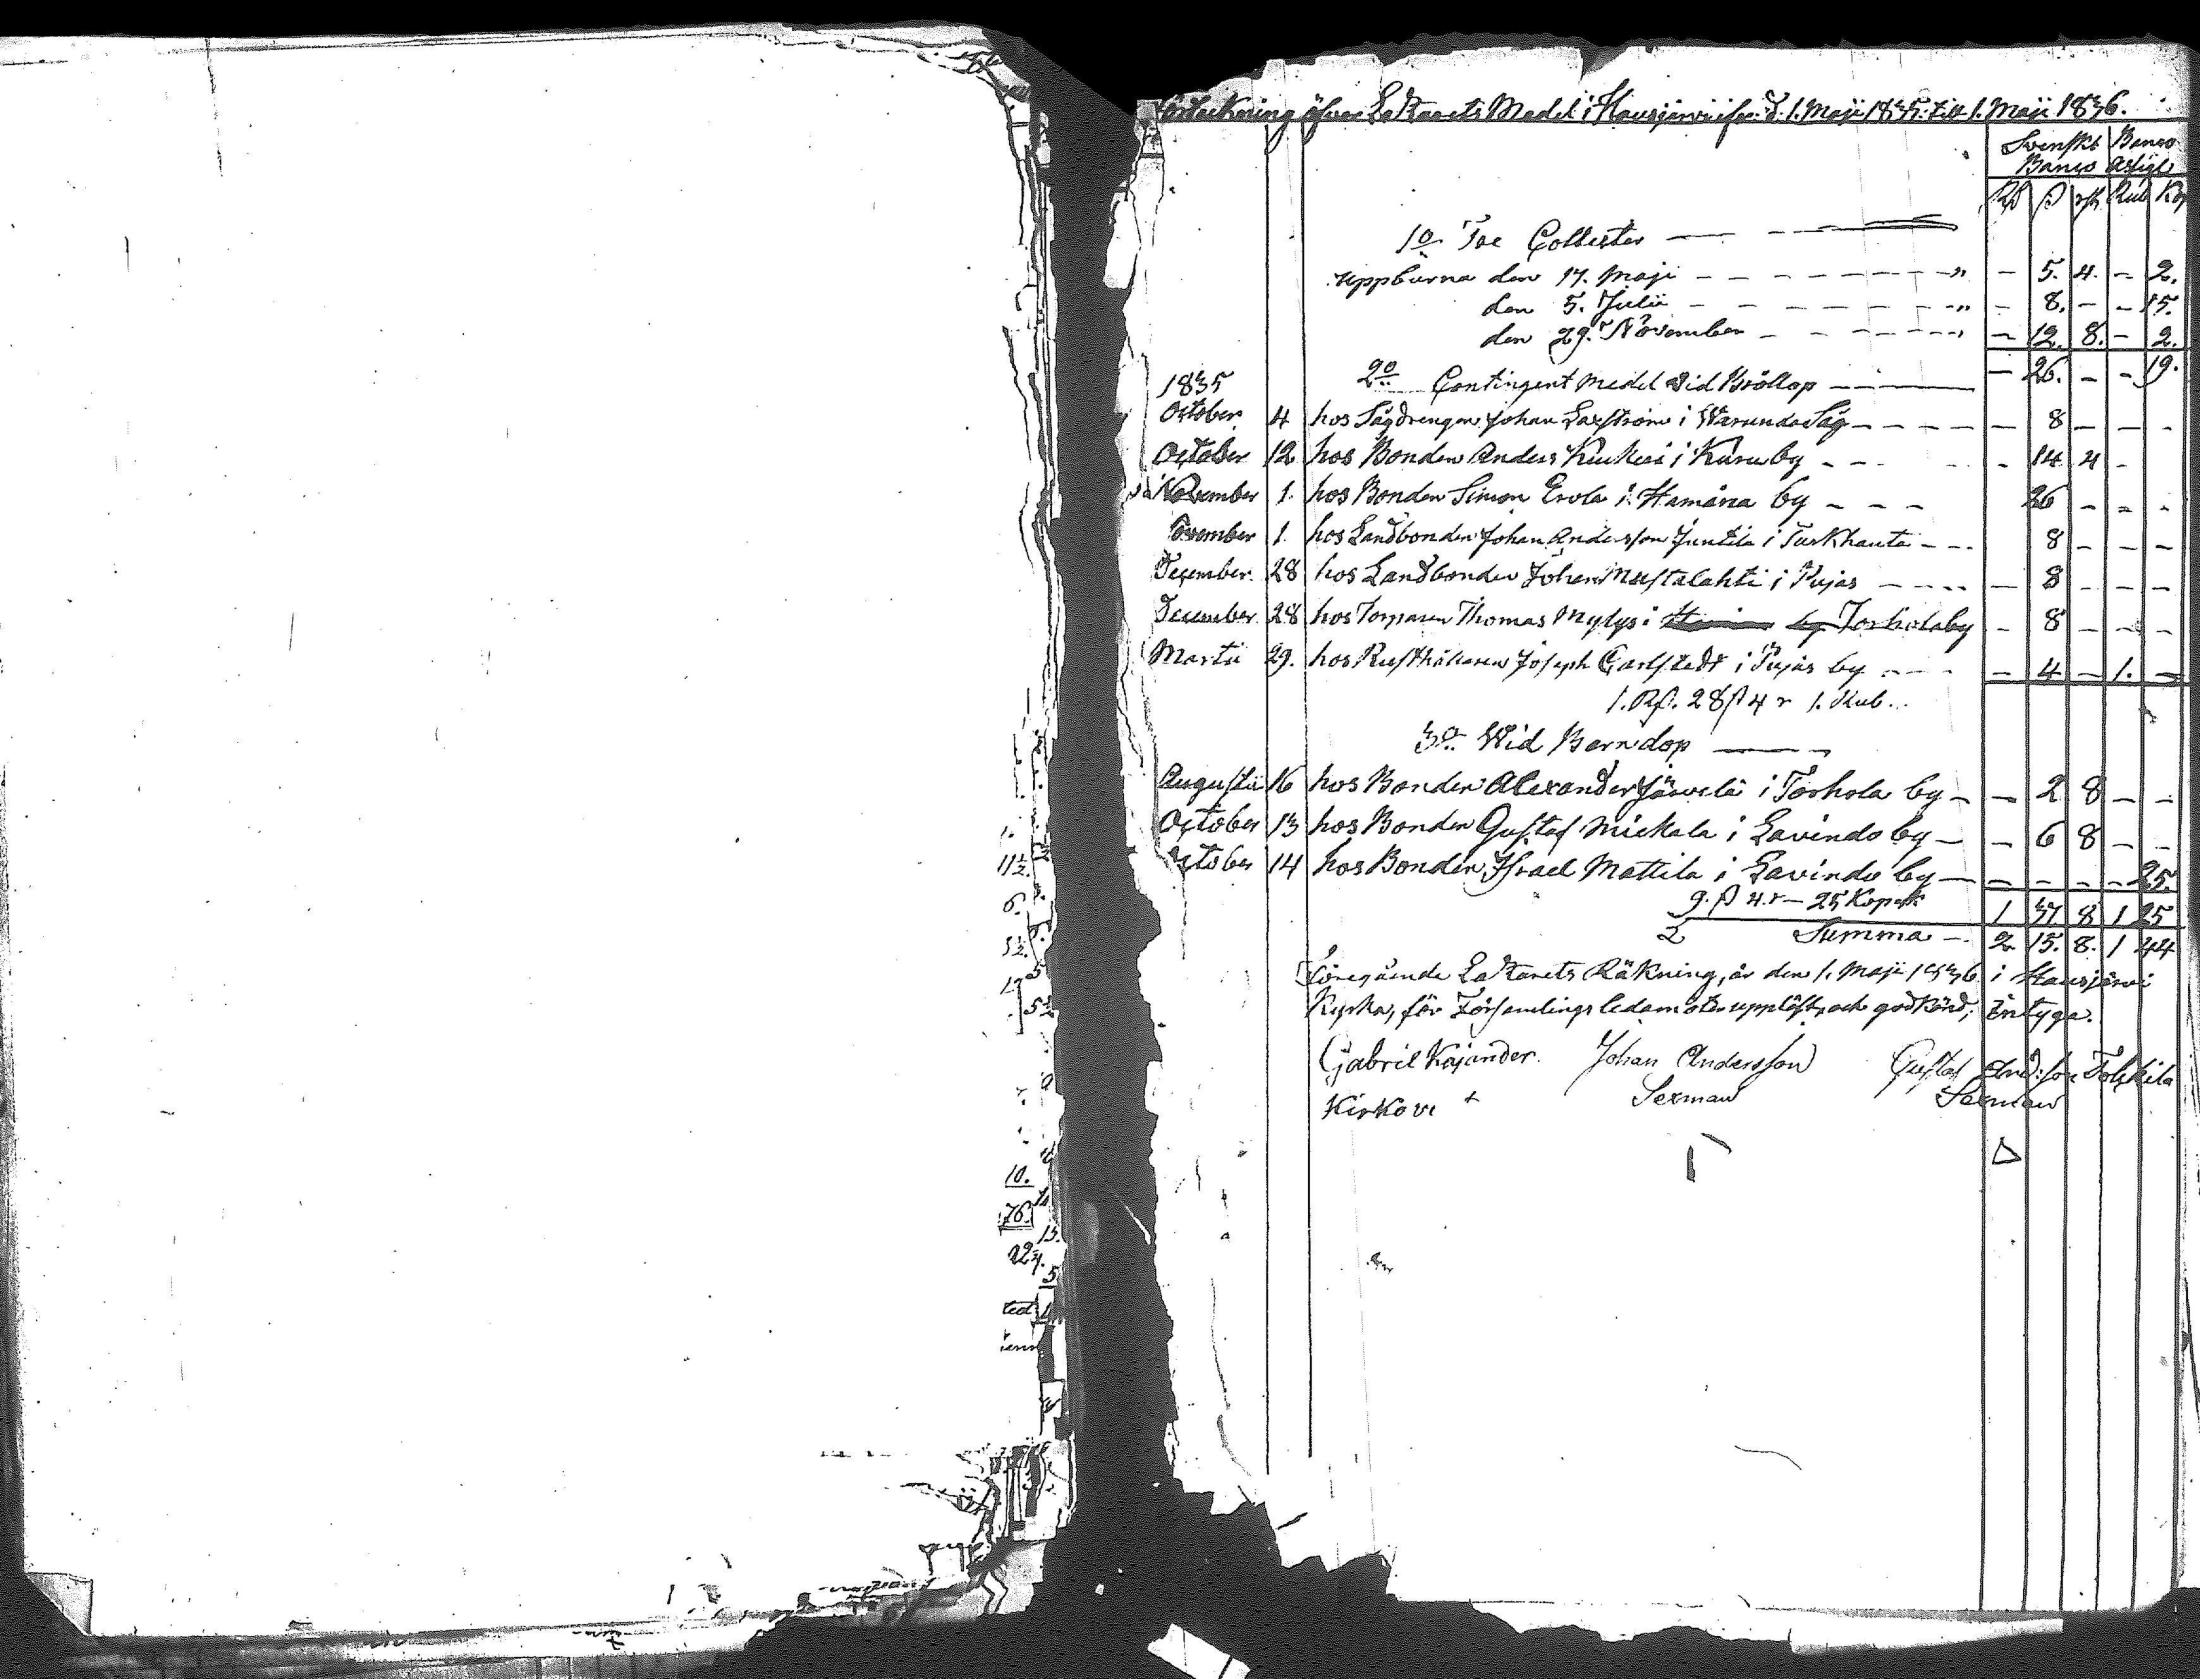 öfver Lazarets Medel i Hausjärvi ifr. d. 1. Maji 1835. till 1. Maji 1836.
Svenskt Banco
Banco Assign
Rd ß rst Rub Kop
1o Tre Collecter
uppburna den 17. Maji — 5. 4. — 2.
den 5. Julii — 8. — — 15.
den 29. November — 12. 8. — 2.
— 26. — — 19.
1835
2o Contingent Medel vid Bröllop
October 4 hos Sågdrengen Johan Laxström i Warunda Såg — 8 — — —
October 12 hos Bonden Anders Kuckoi i Kuru by — 14 4 —
November 1. hos Bonden Simon Erola i Hamåna by — 26 — — —
ovember 1. hos Landbonden Johan Andersson Juntila i Turkhauta — 8 — — —
December 28 hos Landbonden Johan Mustalahti i Pujas — 8 — — —
December 28 hos Torparen Thomas Mylys i by Torhola by — 8 — — —
Martii 29. hos Rusthållaren Joseph Carlstedt i Pujas by — 4 — 1. —
1. Rß. 28 ß 4 r 1. Rub.
3o Wid Barndop
Augusti 16 hos Bonden Alexander Järvelä i Torhola by — 2 8 — —
October 13 hos Bonden Gustaf Mickala i Lavindo by — 6 8 — —
October 14 hos Bonden Israel Mattila i Lavindo by — — — — 25.
9. ß 4. r — 25 Kopek 1 37 8 1 25
Summa — 2. 15. 8. 1 44
Föregående Lazarets Räkning, är den 1. Maji 1836 i Hausjärvi
Kyrka, för Församlings ledamöter uppläst, och godkänd, intyga.
Gabriel Kajander. Johan Andersson Gustaf And:son Tolkkila
Kirkovi + Sexman Sexman
11½
6.
10.
76.
13.
22¾.
5